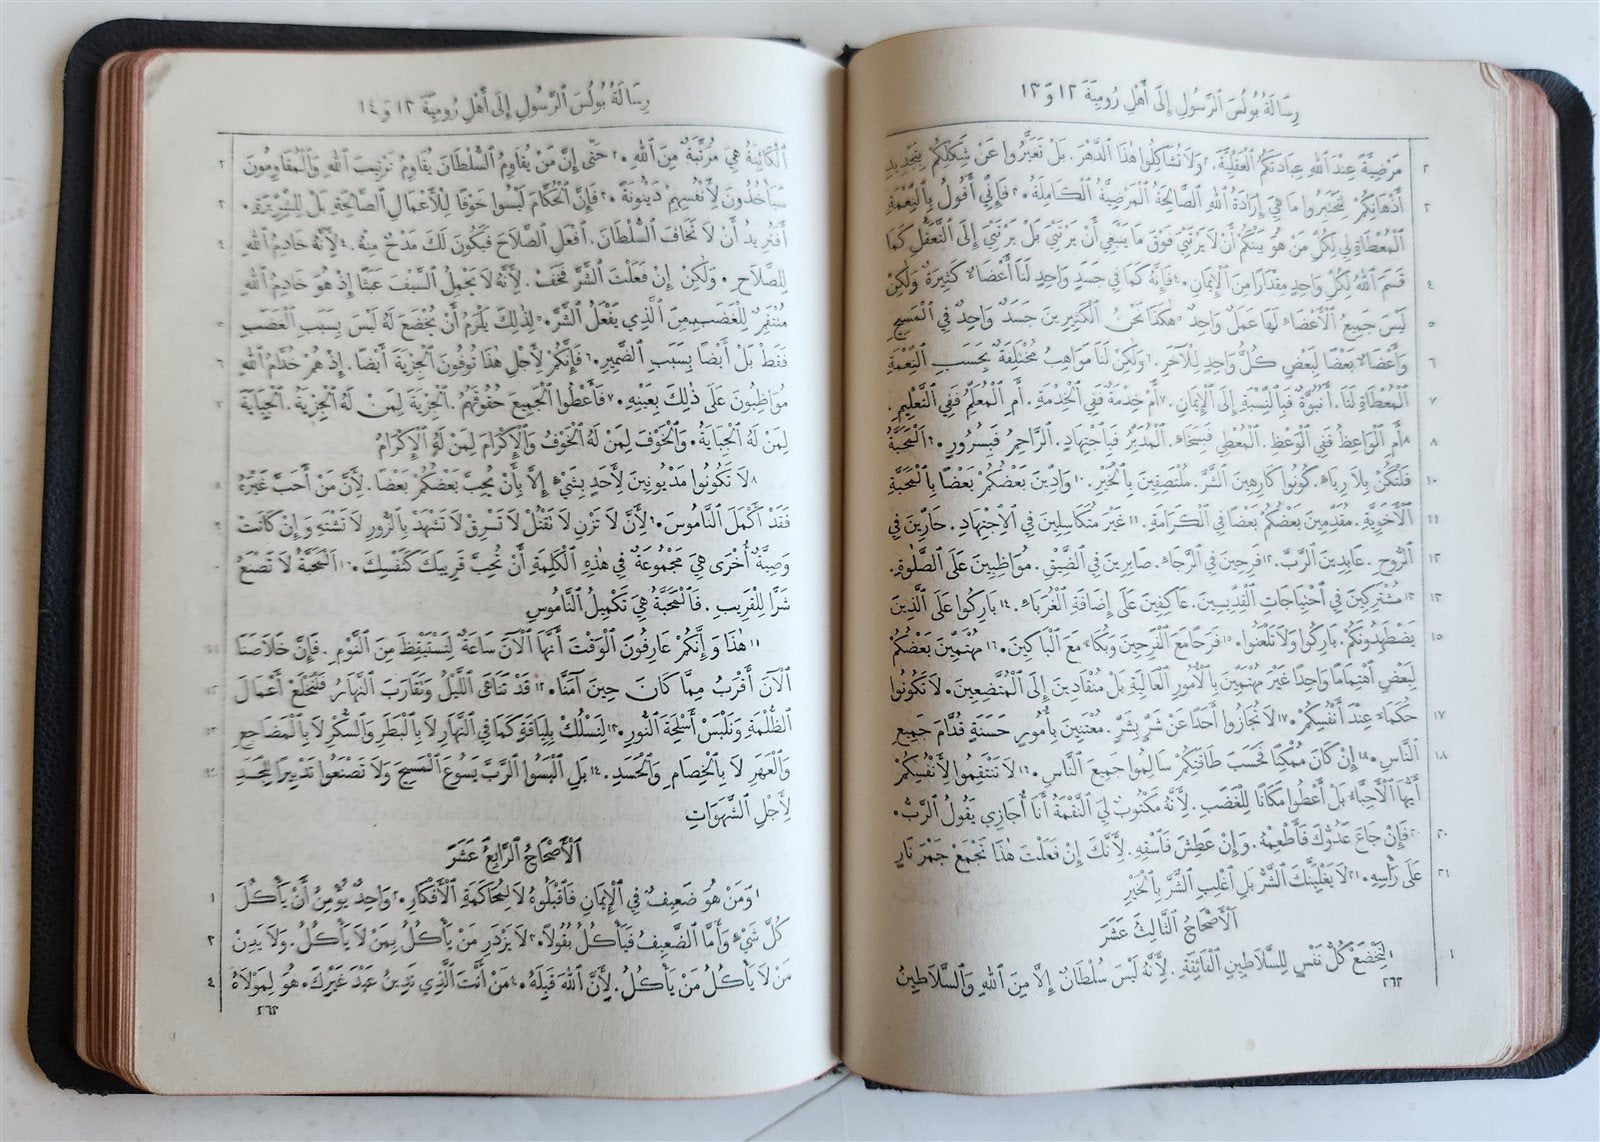 رِسَالَةُ بُولُسَ ٱلرَّسُولِ إِلَى أَهْلِ رُومِيَةَ ١٢ وَ ١٣
٢ مَرْضِيَّةً عِنْدَ ٱللهِ عِبَادَتَكُمُ ٱلْعَقْلِيَّةَ. ٢وَلَا تُشَاكِلُوا هٰذَا ٱلدَّهْرَ. بَلْ تَغَيَّرُوا عَنْ شَكْلِكُمْ بِتَجْدِيدِ
٣ أَذْهَانِكُمْ لِتَخْتَبِرُوا مَا هِيَ إِرَادَةُ ٱللهِ ٱلصَّالِحَةُ ٱلْمَرْضِيَّةُ ٱلْكَامِلَةُ. ٣فَإِنِّي أَقُولُ بِٱلنِّعْمَةِ
ٱلْمُعْطَاةِ لِي لِكُلِّ مَنْ هُوَ بَيْنَكُمْ أَنْ لَا يَرْتَئِيَ فَوْقَ مَا يَنْبَغِي أَنْ يَرْتَئِيَ بَلْ يَرْتَئِيَ إِلَى ٱلتَّعَقُّلِ كَمَا
٤ قَسَمَ ٱللهُ لِكُلِّ وَاحِدٍ مِقْدَارًا مِنَ ٱلْإِيمَانِ. ٤فَإِنَّهُ كَمَا فِي جَسَدٍ وَاحِدٍ لَنَا أَعْضَاءٌ كَثِيرَةٌ وَلٰكِنْ
٥ لَيْسَ جَمِيعُ ٱلْأَعْضَاءِ لَهَا عَمَلٌ وَاحِدٌ ٥هٰكَذَا نَحْنُ ٱلْكَثِيرِينَ جَسَدٌ وَاحِدٌ فِي ٱلْمَسِيحِ
٦ وَأَعْضَاءٌ بَعْضًا لِبَعْضٍ كُلُّ وَاحِدٍ لِلْآخَرِ. ٦وَلٰكِنْ لَنَا مَوَاهِبُ مُخْتَلِفَةٌ بِحَسَبِ ٱلنِّعْمَةِ
٧ ٱلْمُعْطَاةِ لَنَا. أَنُبُوَّةٌ فَبِٱلنِّسْبَةِ إِلَى ٱلْإِيمَانِ. ٧أَمْ خِدْمَةٌ فَفِي ٱلْخِدْمَةِ. أَمِ ٱلْمُعَلِّمُ فَفِي ٱلتَّعْلِيمِ.
٨ ٨أَمِ ٱلْوَاعِظُ فَفِي ٱلْوَعْظِ. ٱلْمُعْطِي فَبِسَخَاءٍ. ٱلْمُدَبِّرُ فَبِٱجْتِهَادٍ. ٱلرَّاحِمُ فَبِسُرُورٍ. ٩اَلْمَحَبَّةُ
١٠ فَلْتَكُنْ بِلَا رِيَاءٍ. كُونُوا كَارِهِينَ ٱلشَّرَّ. مُلْتَصِقِينَ بِٱلْخَيْرِ. ١٠وَادِّينَ بَعْضُكُمْ بَعْضًا بِٱلْمَحَبَّةِ
١١ ٱلْأَخَوِيَّةِ. مُقَدِّمِينَ بَعْضُكُمْ بَعْضًا فِي ٱلْكَرَامَةِ. ١١غَيْرَ مُتَكَاسِلِينَ فِي ٱلِٱجْتِهَادِ. حَارِّينَ فِي
١٢ ٱلرُّوحِ. عَابِدِينَ ٱلرَّبَّ. ١٢فَرِحِينَ فِي ٱلرَّجَاءِ. صَابِرِينَ فِي ٱلضِّيْقِ. مُوَاظِبِينَ عَلَى ٱلصَّلٰوةِ.
١٣ ١٣مُشْتَرِكِينَ فِي ٱحْتِيَاجَاتِ ٱلْقِدِّيسِينَ. عَاكِفِينَ عَلَى إِضَافَةِ ٱلْغُرَبَاءِ. ١٤بَارِكُوا عَلَى ٱلَّذِينَ
١٥ يَضْطَهِدُونَكُمْ. بَارِكُوا وَلَا تَلْعَنُوا. ١٥فَرَحًا مَعَ ٱلْفَرِحِينَ وَبُكَاءً مَعَ ٱلْبَاكِينَ. ١٦مُهْتَمِّينَ بَعْضُكُمْ
لِبَعْضٍ ٱهْتِمَامًا وَاحِدًا غَيْرَ مُهْتَمِّينَ بِٱلْأُمُورِ ٱلْعَالِيَةِ بَلْ مُنْقَادِينَ إِلَى ٱلْمُتَّضِعِينَ. لَا تَكُونُوا
١٧ حُكَمَاءَ عِنْدَ أَنْفُسِكُمْ. ١٧لَا تُجَازُوا أَحَدًا عَنْ شَرٍّ بِشَرٍّ. مُعْتَنِينَ بِأُمُورٍ حَسَنَةٍ قُدَّامَ جَمِيعِ
١٨ ٱلنَّاسِ. ١٨إِنْ كَانَ مُمْكِنًا فَحَسَبَ طَاقَتِكُمْ سَالِمُوا جَمِيعَ ٱلنَّاسِ. ١٩لَا تَنْتَقِمُوا لِأَنْفُسِكُمْ
أَيُّهَا ٱلْأَحِبَّاءُ بَلْ أَعْطُوا مَكَانًا لِلْغَضَبِ. لِأَنَّهُ مَكْتُوبٌ لِيَ ٱلنَّقْمَةُ أَنَا أُجَازِي يَقُولُ ٱلرَّبُّ.
٢٠ ٢٠فَإِنْ جَاعَ عَدُوُّكَ فَأَطْعِمْهُ. وَإِنْ عَطِشَ فَٱسْقِهِ. لِأَنَّكَ إِنْ فَعَلْتَ هٰذَا تَجْمَعْ جَمْرَ نَارٍ
٢١ عَلَى رَأْسِهِ. ٢١لَا يَغْلِبَنَّكَ ٱلشَّرُّ بَلِ ٱغْلِبِ ٱلشَّرَّ بِٱلْخَيْرِ
اَلْأَصْحَاحُ ٱلثَّالِثُ عَشَرَ
١ ١لِتَخْضَعْ كُلُّ نَفْسٍ لِلسَّلَاطِينِ ٱلْفَائِقَةِ. لِأَنَّهُ لَيْسَ سُلْطَانٌ إِلَّا مِنَ ٱللهِ وَٱلسَّلَاطِينُ
٢٦٢
رِسَالَةُ بُولُسَ ٱلرَّسُولِ إِلَى أَهْلِ رُومِيَةَ ١٣ وَ ١٤
ٱلْكَائِنَةُ هِيَ مُرَتَّبَةٌ مِنَ ٱللهِ. ٢حَتَّى إِنَّ مَنْ يُقَاوِمُ ٱلسُّلْطَانَ يُقَاوِمُ تَرْتِيبَ ٱللهِ وَٱلْمُقَاوِمُونَ ٢
سَيَأْخُذُونَ لِأَنْفُسِهِمْ دَيْنُونَةً. ٣فَإِنَّ ٱلْحُكَّامَ لَيْسُوا خَوْفًا لِلْأَعْمَالِ ٱلصَّالِحَةِ بَلْ لِلشِّرِّيرَةِ. ٣
أَفَتُرِيدُ أَنْ لَا تَخَافَ ٱلسُّلْطَانَ. ٱفْعَلِ ٱلصَّلَاحَ فَيَكُونَ لَكَ مَدْحٌ مِنْهُ. ٤لِأَنَّهُ خَادِمُ ٱللهِ ٤
لِلصَّلَاحِ. وَلٰكِنْ إِنْ فَعَلْتَ ٱلشَّرَّ فَخَفْ. لِأَنَّهُ لَا يَحْمِلُ ٱلسَّيْفَ عَبَثًا إِذْ هُوَ خَادِمُ ٱللهِ
مُنْتَقِمٌ لِلْغَضَبِ مِنَ ٱلَّذِي يَفْعَلُ ٱلشَّرَّ. ٥لِذٰلِكَ يَلْزَمُ أَنْ يُخْضَعَ لَهُ لَيْسَ بِسَبَبِ ٱلْغَضَبِ ٥
فَقَطْ بَلْ أَيْضًا بِسَبَبِ ٱلضَّمِيرِ. ٦فَإِنَّكُمْ لِأَجْلِ هٰذَا تُوفُونَ ٱلْجِزْيَةَ أَيْضًا. إِذْ هُمْ خُدَّامُ ٱللهِ ٦
مُوَاظِبُونَ عَلَى ذٰلِكَ بِعَيْنِهِ. ٧فَأَعْطُوا ٱلْجَمِيعَ حُقُوقَهُمُ. ٱلْجِزْيَةَ لِمَنْ لَهُ ٱلْجِزْيَةُ. ٱلْجِبَايَةَ ٧
لِمَنْ لَهُ ٱلْجِبَايَةُ. وَٱلْخَوْفَ لِمَنْ لَهُ ٱلْخَوْفُ وَٱلْإِكْرَامَ لِمَنْ لَهُ ٱلْإِكْرَامُ
٨لَا تَكُونُوا مَدْيُونِينَ لِأَحَدٍ بِشَيْءٍ إِلَّا بِأَنْ يُحِبَّ بَعْضُكُمْ بَعْضًا. لِأَنَّ مَنْ أَحَبَّ غَيْرَهُ ٨
فَقَدْ أَكْمَلَ ٱلنَّامُوسَ. ٩لِأَنَّ لَا تَزْنِ لَا تَقْتُلْ لَا تَسْرِقْ لَا تَشْهَدْ بِٱلزُّورِ لَا تَشْتَهِ وَإِنْ كَانَتْ ٩
وَصِيَّةٌ أُخْرَى هِيَ مَجْمُوعَةٌ فِي هٰذِهِ ٱلْكَلِمَةِ أَنْ تُحِبَّ قَرِيبَكَ كَنَفْسِكَ. ١٠اَلْمَحَبَّةُ لَا تَصْنَعُ
شَرًّا لِلْقَرِيبِ. فَٱلْمَحَبَّةُ هِيَ تَكْمِيلُ ٱلنَّامُوسِ
١١هٰذَا وَإِنَّكُمْ عَارِفُونَ ٱلْوَقْتَ أَنَّهَا ٱلْآنَ سَاعَةٌ لِنَسْتَيْقِظَ مِنَ ٱلنَّوْمِ. فَإِنَّ خَلَاصَنَا ١١
ٱلْآنَ أَقْرَبُ مِمَّا كَانَ حِينَ آمَنَّا. ١٢قَدْ تَنَاهَى ٱللَّيْلُ وَتَقَارَبَ ٱلنَّهَارُ فَلْنَخْلَعْ أَعْمَالَ ١٢
ٱلظُّلْمَةِ وَنَلْبَسْ أَسْلِحَةَ ٱلنُّورِ. ١٣لِنَسْلُكْ بِلِيَاقَةٍ كَمَا فِي ٱلنَّهَارِ لَا بِٱلْبَطَرِ وَٱلسُّكْرِ لَا بِٱلْمَضَاجِعِ ١٣
وَٱلْعَهَرِ لَا بِٱلْخِصَامِ وَٱلْحَسَدِ. ١٤بَلِ ٱلْبَسُوا ٱلرَّبَّ يَسُوعَ ٱلْمَسِيحَ وَلَا تَصْنَعُوا تَدْبِيرًا لِلْجَسَدِ ١٤
لِأَجْلِ ٱلشَّهَوَاتِ
اَلْأَصْحَاحُ ٱلرَّابِعُ عَشَرَ
١وَمَنْ هُوَ ضَعِيفٌ فِي ٱلْإِيمَانِ فَٱقْبَلُوهُ لَا لِمُحَاكَمَةِ ٱلْأَفْكَارِ. ٢وَاحِدٌ يُؤْمِنُ أَنْ يَأْكُلَ ١
كُلَّ شَيْءٍ وَأَمَّا ٱلضَّعِيفُ فَيَأْكُلُ بُقُولًا. ٣لَا يَزْدَرِ مَنْ يَأْكُلُ بِمَنْ لَا يَأْكُلُ. وَلَا يَدِنْ ٣
مَنْ لَا يَأْكُلُ مَنْ يَأْكُلُ. لِأَنَّ ٱللهَ قَبِلَهُ. ٤مَنْ أَنْتَ ٱلَّذِي تَدِينُ عَبْدَ غَيْرِكَ. هُوَ لِمَوْلَاهُ ٤
٢٦٣